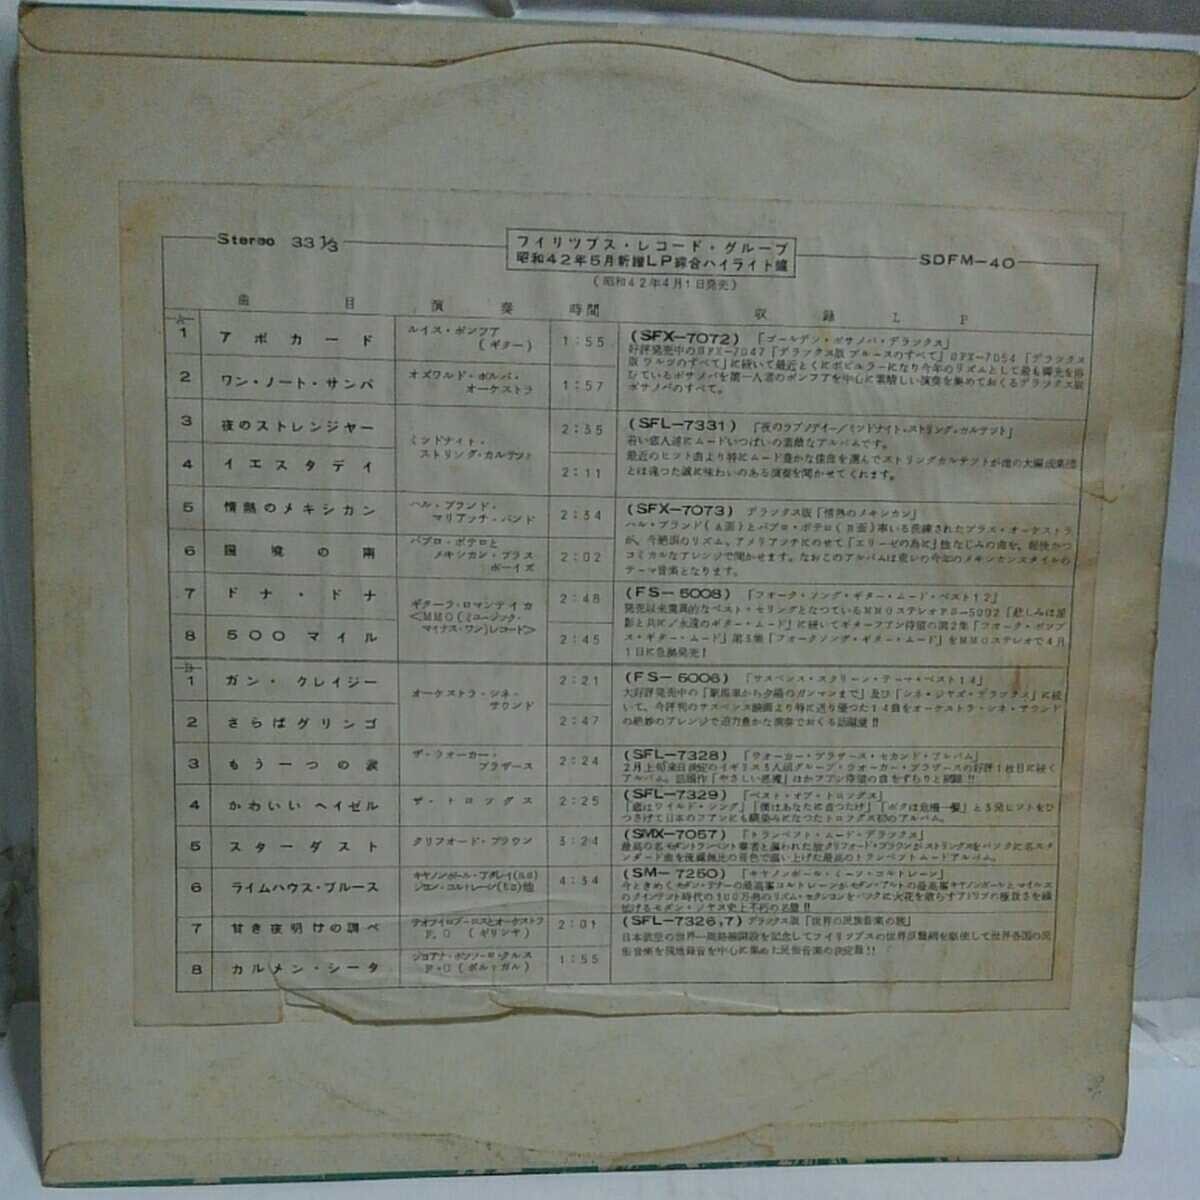 Stereo 33 1/3
フイリツプス・レコード・グループ
昭和42年5月新譜LP綜合ハイライト集
SDFM-40
(昭和42年4月1日発売)
曲目 演奏 時間 収録LP
A
1 アボカード ルイス・ボンフア (ギター) 1:55
(SFX-7072) 「ゴールデン・ボサノバ・デラツクス」
好評発売中のSFX-7047「デラツクス版 ブルースのすべて」SFX-7054「デラツクス
版 ワルツのすべて」に続いて最近とくにポピユラーになり今年のリズムとして最も脚光を浴
びているボサノバを第一人者のボンフアを中心に素晴しい演奏を集めておくるデラツクス版
ボサノバのすべて。
2 ワン・ノート・サンバ オズワルド・ボルバ・オーケストラ 1:57
3 夜のストレンジヤー ミツドナイト・ストリング・カルテツト 2:35
(SFL-7331) 「夜のラブソデイー/ミツドナイト・ストリング・カルテツト」
若い恋人達にムードいつぱいの素敵なアルバムです。
最近のヒツト曲より特にムード豊かな佳曲を選んでストリングカルテツトが他の大編成楽団
とは違つた誠に味わいのある演奏を聞かせてくれます。
4 イエスタデイ 2:11
5 情熱のメキシカン ハル・ブランド・マリアツチ・バンド 2:34
(SFX-7073) デラツクス版「情熱のメキシカン」
ハル・ブランド(A面)とパブロ・ポテロ(B面)率いる洗練されたブラス・オーケストラ
が、今絶頂のリズム、アメリアツチにのせて「エリーゼの為に」他なじみの曲を、軽快かつ
コミカルなアレンジで聞かせます。なおこのアルバムは衆レの今年のメキシカンスタイルの
テーマ音楽となります。
6 国境の南 パブロ・ポテロとメキシカン・ブラス・ボーイズ 2:02
7 ドナ・ドナ ギターラ・ロマンテイカ 2:48
<MMO(ミユージツク・マイナス・ワン)レコード>
(FS-5008) 「フオーク・ソング・ギター・ムード・ベスト12」
発売以来驚異的なベスト・セリングとなつているMMOステレオFS-5002「悲しみは星
影と共に/永遠のギター・ムード」に続いてギターフアン待望の第2集「フオーク・ポツプ
ス・ギター・ムード」第3集「フオークソング・ギター・ムード」をMMOステレオで4月
1日に急拠発売!
8 500マイル 2:45
B
1 ガン・クレイジー オーケストラ・シネ・サウンド 2:21
(FS-5006) 「サスペンス・スクリーン・テーマ・ベスト14」
大好評発売中の「駅馬車から夕陽のガンマンまで」及び「シネ・ジヤズ・デラツクス」に続
いて、今評判のサスペンス映画より特に送り優つた14曲をオーケストラ・シネ・サウンド
の絶妙のアレンジで迫力豊かな演奏でおくる話題盤!!
2 さらばグリンゴ 2:47
3 もう一つの涙 ザ・ウオーカー・ブラザース 2:24
(SFL-7328) 「ウオーカー・ブラザース・セカンド・アルバム」
2月上旬来日決定のイギリス3人組グループ・ウオーカー・ブラザースの好評1枚目に続く
アルバム。話題作「やさしい悪魔」ほかフアン待望の曲をずらりと網羅!!
4 かわいいヘイゼル ザ・トロツグス 2:25
(SFL-7329) 「ベスト・オブ・トロツグス」
「恋はワイルド・ソング」「僕はあなたに首つたけ」「ボクは危機一髪」と3発ヒツトをひ
つさげて日本のフアンにも馴染みになつたトロツグス初のアルバム。
5 スターダスト クリフオード・ブラウン 3:24
(SMX-7057) 「トランペツト・ムード・デラツクス」
最高の名モダントランペツト奏者と謳われた故クリフオード・ブラウンがストリングスをバツクに名スタ
ンダード曲を流麗無比の音色で謳い上げた最高のトランペツトムードアルバム。
6 ライムハウス・ブルース キヤノンボール・アダレイ(as) ジヨン・コルトレーン(ts)他 4:34
(SM-7250) 「キヤノンボール・ミーツ・コルトレーン」
今ときめくモダン・テナーの最高峯コルトレーンがモダン・アルトの最高峯キヤノンボールとマイルス
のクインテツト時代の100万弗のリズム・セクシヨンをバツクに火花を散らすアドリブの極致さを繰
拡げるモダン・ジヤズ史上不朽の名盤!!
7 甘き夜明けの調べ テオフイロプーロスとオーケストラ F.O(ギリシヤ) 2:01
(SFL-7326,7) デラツクス版「世界の民族音楽の旅」
日本航空の世界一周路線開設を記念してフイリツプスの世界原盤網を駆使して世界各国の民
俗音楽を現地録音を中心に集めた民俗音楽の決定盤!!
8 カルメン・シータ ジヨアナ・ポンソーロ・クルス F.O(ポルトガル) 1:55